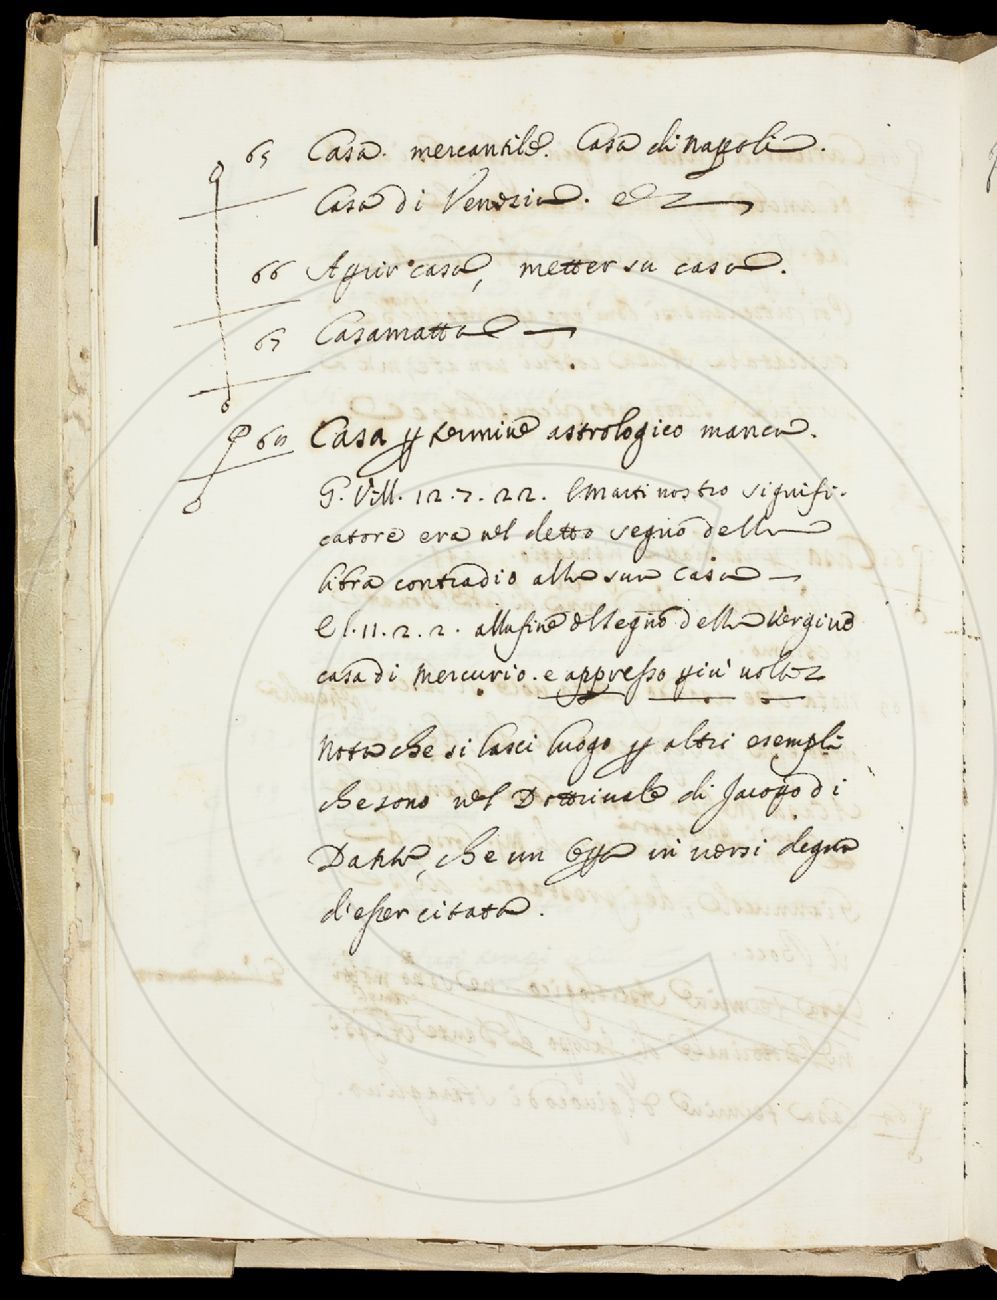 65 Casa. mercantile. Casa di Napoli.
Casa di Venezia. etc
66 Aprir casa, metter su casa.
67 Casamatta
68 Casa p termine astrologico manca.
G. Vill. 12.7.22. e Marti nostro signifi-
catore era nel detto segno della
libra contradio alla sua casa
E l. 11.2.2. alla fine del segno della Vergine
casa di Mercurio. e appresso più volte
Nota che si lasci luogo p altri esempli
che sono nel Dottrinale di Jacopo di
Dante, che è un in versi degna
d'esser citata.